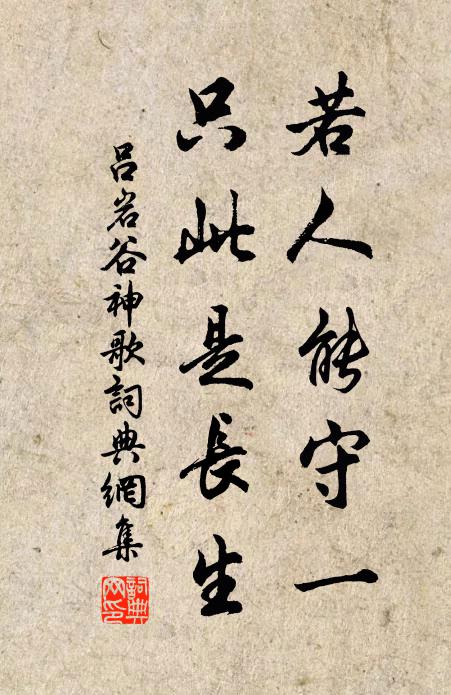 若人能守一
只此是長生
吕岩谷神歌詞典網集
詞典
网印